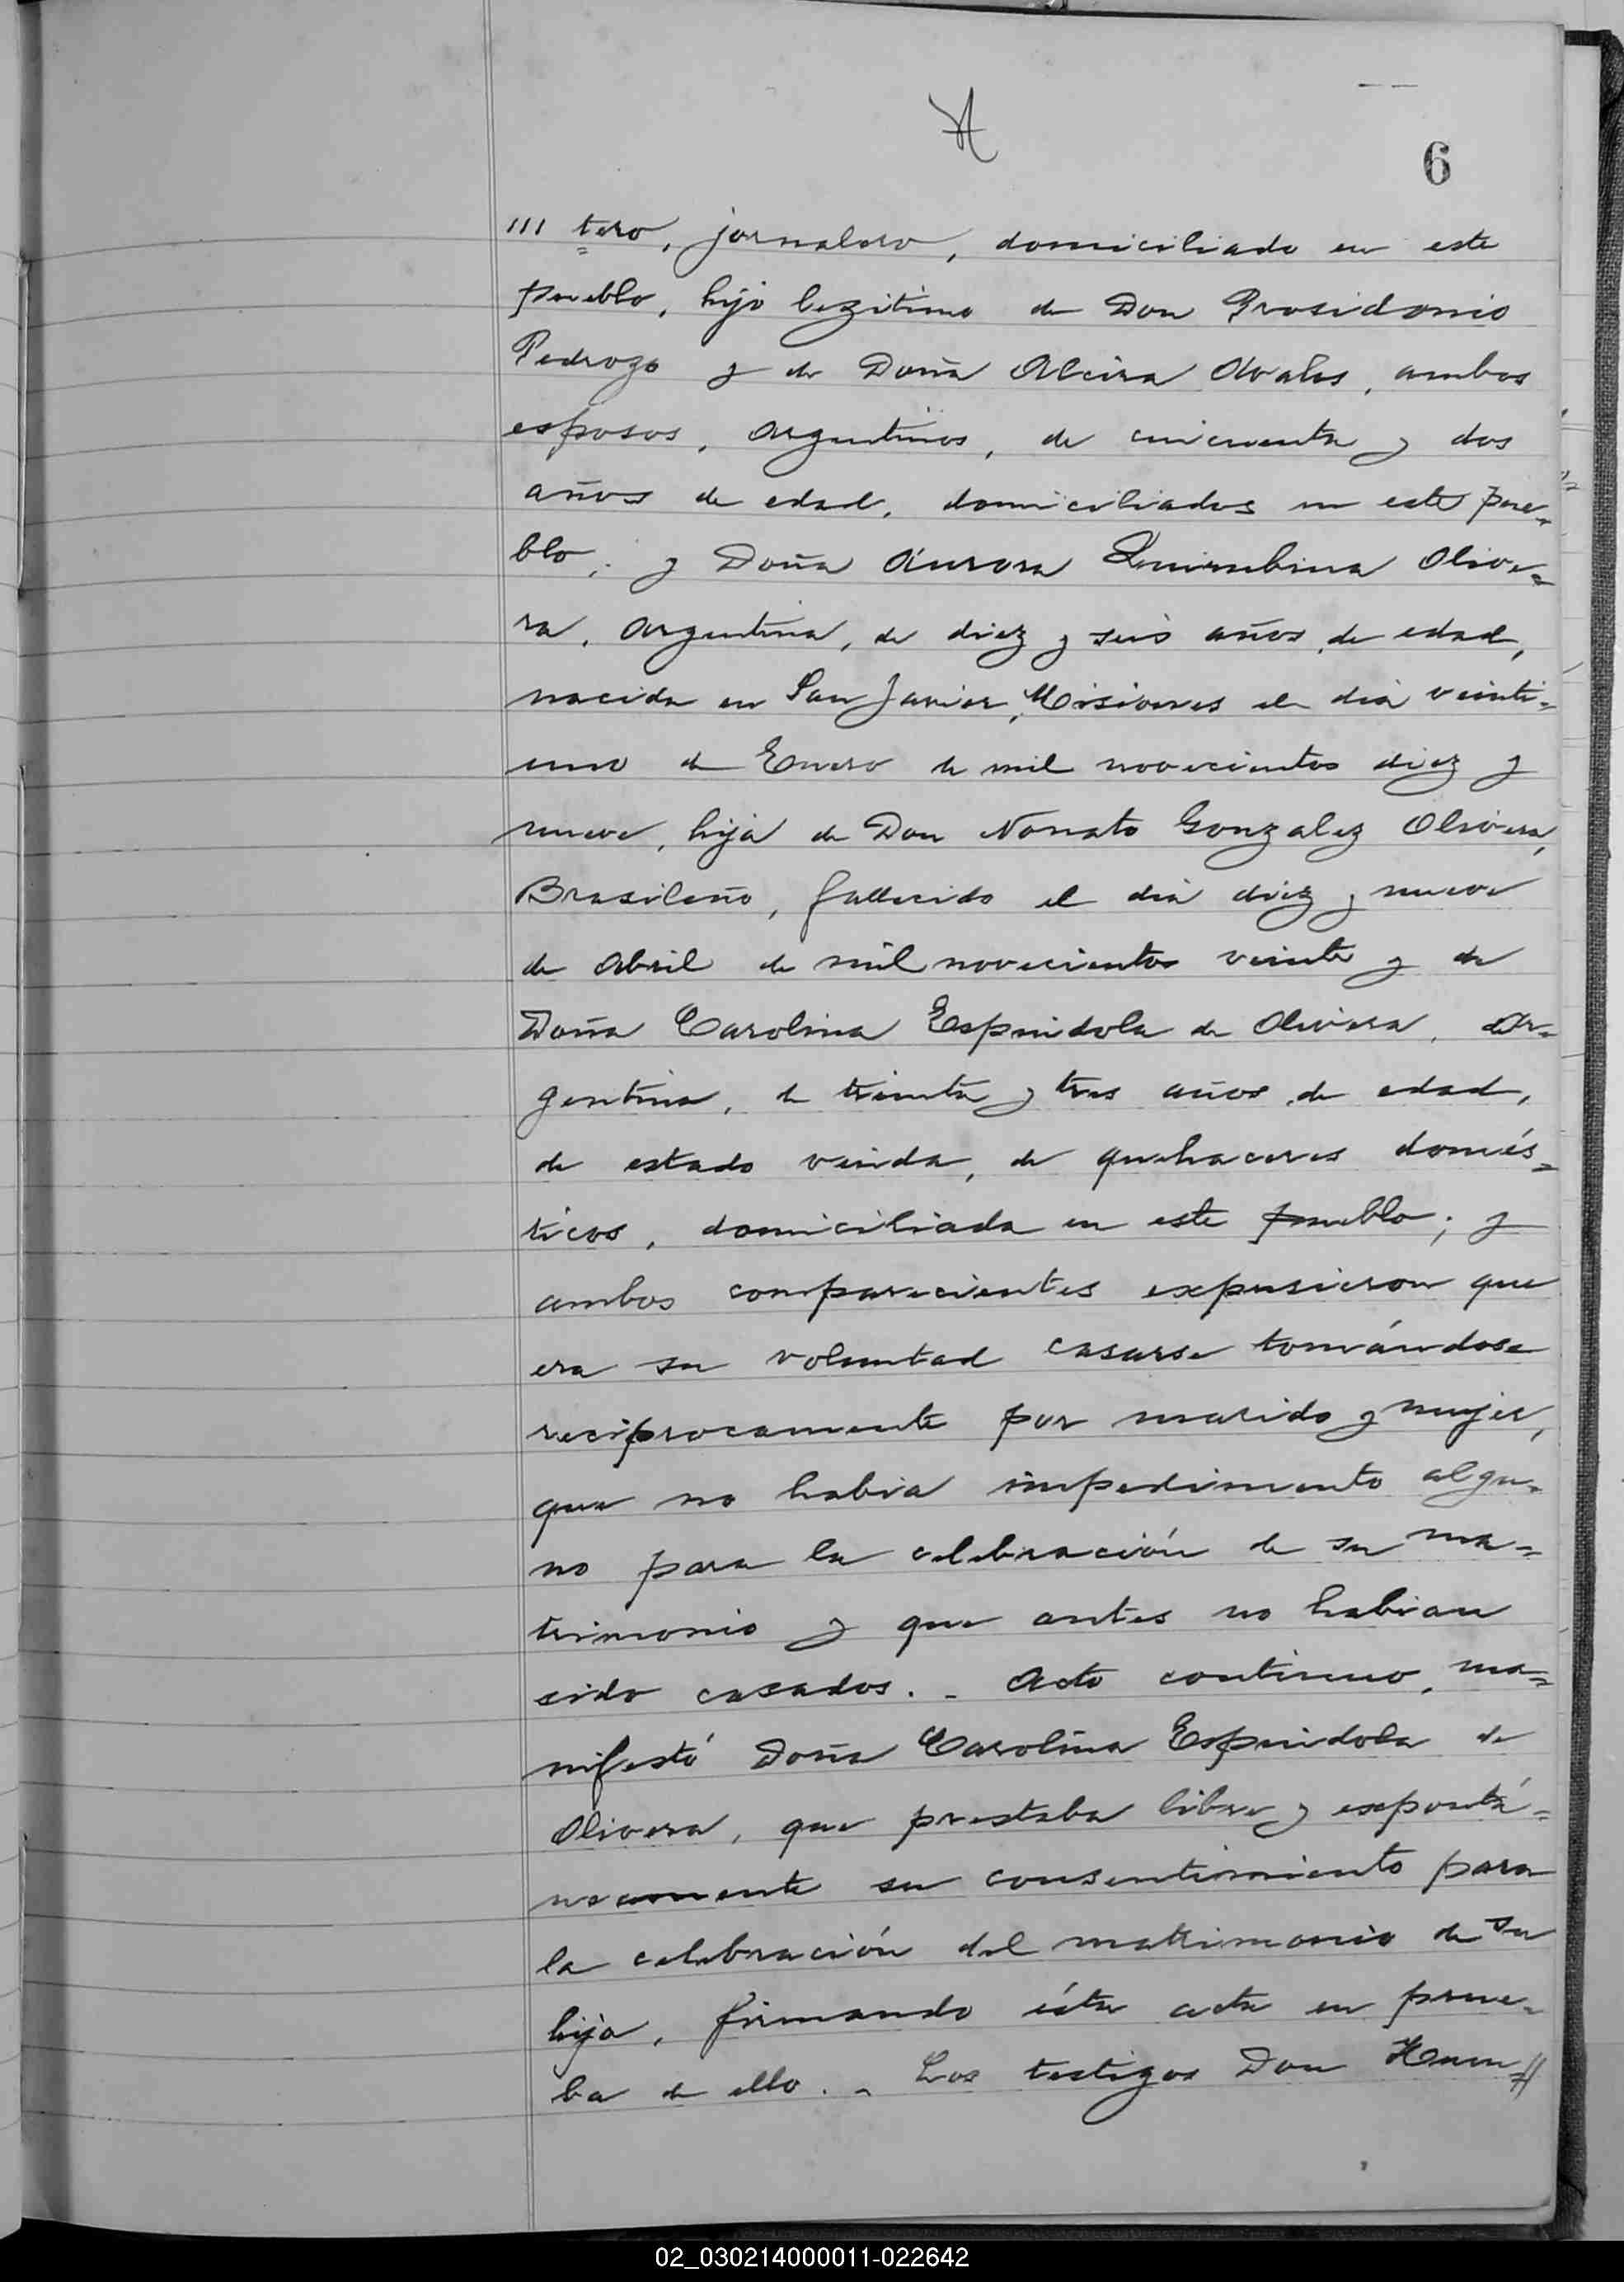 6
/// tero, jornalero, domiciliado en este
pueblo, hijo legitimo de Don Prosidonio
Pedrozo y de Doña Alcira Avalos, ambos
esposos, Argentinos, de cincuenta y dos
años de edad, domiciliados en este pue=
blo; y Doña Aurora Quirubina Olive=
ra, Argentina, de diez y seis años de edad,
nacida en San Javier, Misiones el dia veinti=
uno de Enero de mil novecientos diez y
nueve, hija de Don Nonato Gonzalez Olivera,
Brasileño, fallecido el dia diez y nueve
de Abril de mil novecientos veinte y de
Doña Carolina Espindola de Olivera, Ar=
gentina, de treinta y tres años de edad,
de estado viuda, de quehaceres domés=
ticos, domiciliada en este pueblo; y
ambos comparecientes expusieron que
era su voluntad casarse tomándose
reciprocamente por marido y mujer,
que no habia impedimento algu=
no para la celebración de su ma=
trimonio y que antes no habian
sido casados.- Acto continuo, ma=
nifestó Doña Carolina Espindola de
Olivera, que prestaba libre y expontá=
neamente su consentimiento para
la celebración del matrimonio de su
hija, firmando ésta acta en prue=
ba de ello.- Los testigos Don
02_030214000011-022642